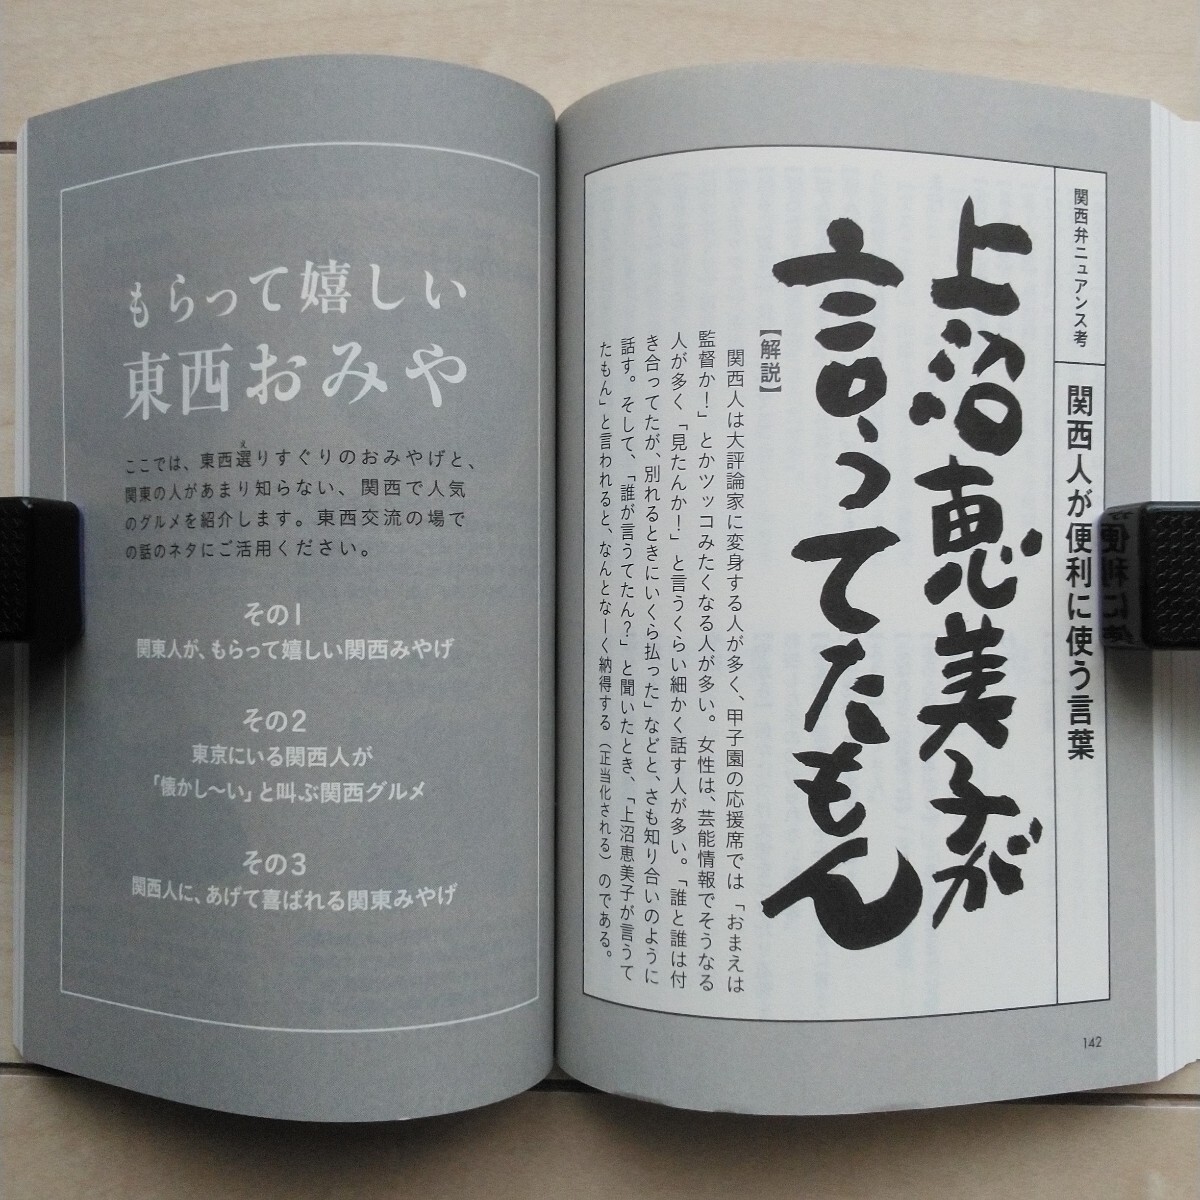 関西弁ニュアンス考
関西人が便利に使う言葉
上沼恵美子が
言うてたもん
【解説】
関西人は大評論家に変身する人が多く、甲子園の応援席では「おまえは
監督か!」とかツッコみたくなる人が多い。女性は、芸能情報でそうなる
人が多く「見たんか!」と言うくらい細かく話す人が多い。「誰と誰は付
き合ってたが、別れるときにいくら払った」などと、さも知り合いのように
話す。そして、「誰が言うてたん?」と聞いたとき、「上沼恵美子が言うて
たもん」と言われると、なんとなーく納得する(正当化される)のである。
142
もらって嬉しい
東西おみや
ここでは、東西選りすぐりのおみやげと、
え
関東の人があまり知らない、関西で人気
のグルメを紹介します。東西交流の場で
の話のネタにご活用ください。
その1
関東人が、もらって嬉しい関西みやげ
その2
東京にいる関西人が
「懐かし〜い」と叫ぶ関西グルメ
その3
関西人に、あげて喜ばれる関東みやげ